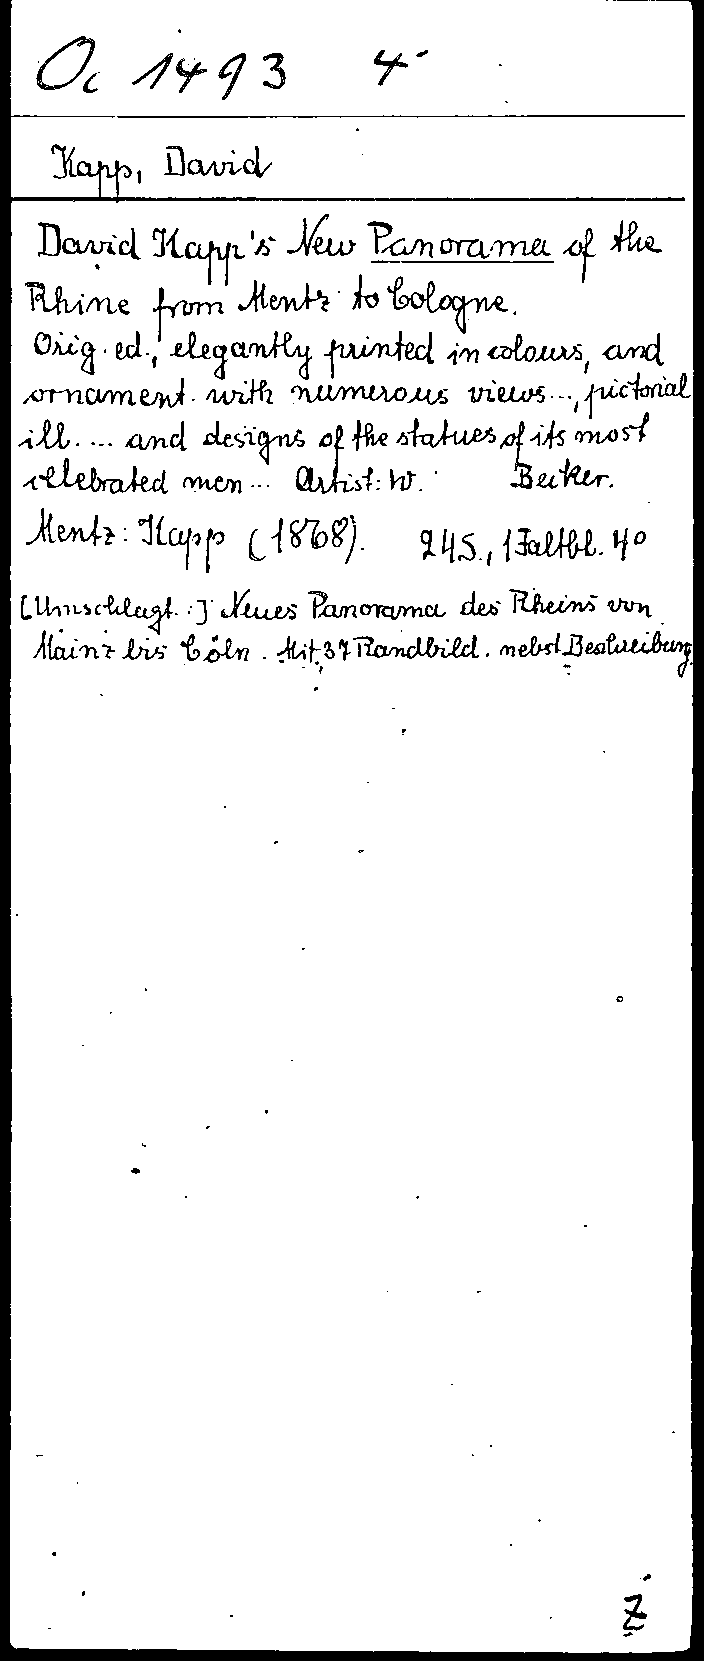 Oc 1493 4°
Kapp, David
David Kapp's New Panorama of the
Rhine from Mentz to Cologne.
Orig. ed., elegantly printed in colours, and
ornament. with numerous views..., pictorial
ill. ... and designs of the statues of its most
celebrated men... Artist: W. Becker.
Mentz: Kapp (1868). 24 S., 1 Faltbl. 4°
[Umschlagt.:] Neues Panorama des Rheins von
Mainz bis Cöln. Mit 37 Randbild. nebst Beschreibung.
Z